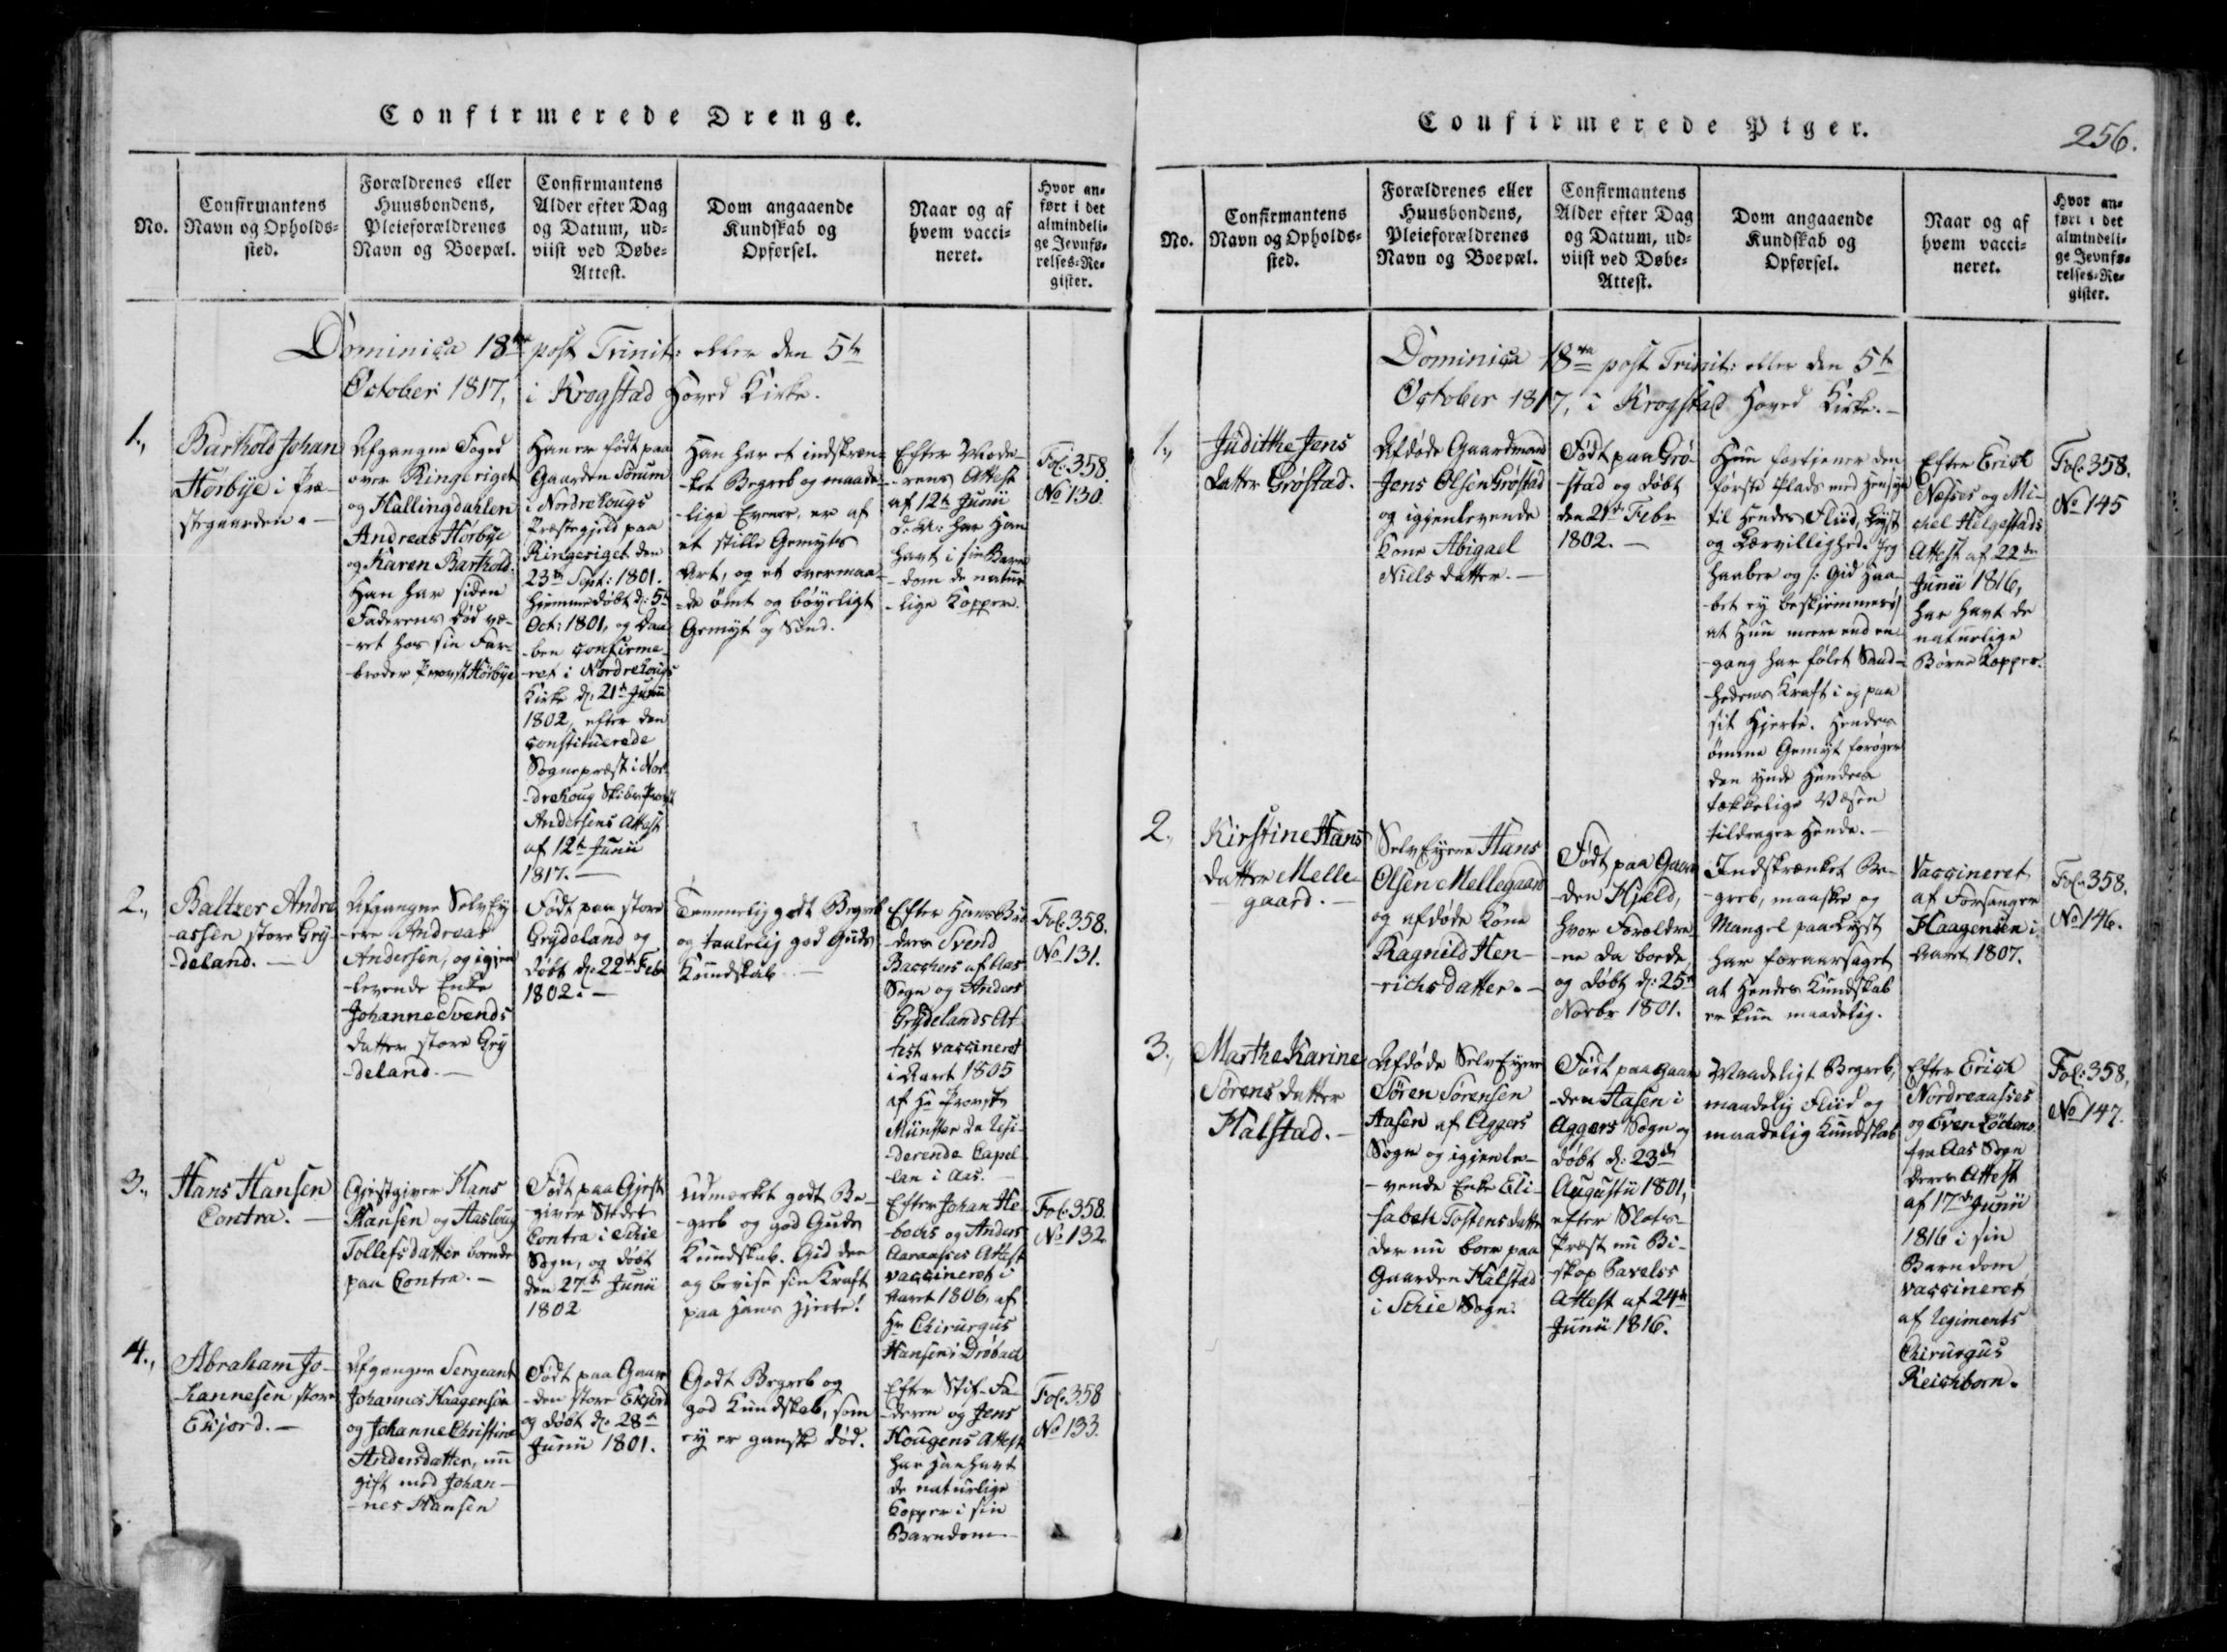 Confirmerede Drenge.
No.
Confirmantens
Navn og Opholds-
sted.
Forældrenes eller
Huusbondens,
Pleieforældrenes
Navn og Boepæl.
Confirmantens
Alder efter Dag
og Datum, ud-
viist ved Døbe-
Attest.
Dom angaaende
Kundskab og
Opførsel.
Naar og af
hvem vacci-
neret.
Hvor an-
ført i det
almindeli-
ge Jevnfø-
relses-Re-
gister.
Dominica 18de post Trinit: eller den 5te
October 1817, i Krogstad Hoved Kirke.
1.,
Barthold Johan
Hörbÿe i Præ-
stegaarden.-
Afgangne Foged
over Ringeriget
og Hallingdahlen
Andreas Hörbÿe
og Karen Barthold:
Han har siden
Faderens Död væ-
-ret hos sin Far-
-broder Provst Hörbÿe
Han er födt paa
Gaarden Sörum
i Nordrehougs
Præstegjeld paa
Ringeriget den
23de Sept: 1801.
hjemmedöbt d: 5te
Oct: 1801, og Daa-
-ben confirme-
-ret i Nordrehougs
Kirke d: 21de Junii
1802, efter den
constituerede
Sognepræst i Nor-
-drehoug
Andersens Attest
af 12te Junii
1817.-
Han har et indskræn-
-ket Begreb og maade-
-lige Evner, er af
et stille Gemyts
Art, og et overmaa-
-de ömt og böyeligt
Gemyt og Sind.
Efter Mode-
-rens Attest
af 12te Junii
d. A: har Han
havt i sin Barn
-dom de natur
-lige Kopper.
Fol: 358.
No 130.
2.,
Baltzer Andre
-assen store Grÿ-
-deland.-
Afgangne Selv Eÿ
-ere Andreas
Andersen, og igjen
-levende Enke
Johanne Svends
datter store Grÿ
-deland.-
Födt paa store
Grÿdeland og
döbt d: 22de Febr
1802.-
Temmelig godt Begreb
og taalelig god Guds
Kundskab.-
Efter Hans
Svend
Bacchers af Aas
Sogn og Anders
Grÿdelands At
test vaccineret
i Aaret 1805
af Hr Provst
Münster da Resi-
-derende Capel
-lan i Aas.
Fol: 358.
No 131.
3.,
Hans Hansen
Contra.-
Gjestgiver Hans
Hansen og Aasloug
Tollefsdatter boende
paa Contra.-
Födt paa Gjest
-giver Stedet
Contra i Schie
Sogn, og döbt
den 27de Junii
1802
Udmærket godt Be-
-greb og god Guds
Kundskab. Gid den
og bevise sin Kraft
paa Hans Hjerte!
Efter Johan He-
-boers og Anders
Aaraasses Attest
vaccineret i
Aaret 1806, af
Hr Chirurgus
Hansen i Dröbach
Fol: 358.
No 132
4.,
Abraham Jo-
-hannesen store
Ekjord.-
Afgangne Sergeant
Johannes Haagensen
og Johanne Christine
Andersdatter, nu
gift med Johan-
-nes Hansen
Födt paa Gaar
-den store Ekjord
og döbt d: 28de
Junii 1801.
Godt Begreb og
god Kundskab, som
ey er ganske död.
Efter Stif-Fa-
-deren og Jens
Hougens Attest
har Han havt
de naturlige
Kopper i sin
Barndom.-
Fol: 358
No 133.
Confirmerede Piger.
256.
No.
Confirmantens
Navn og Opholds-
sted.
Forældrenes eller
Huusbondens,
Pleieforældrenes
Navn og Boepæl.
Confirmantens
Alder efter Dag
og Datum, ud-
viist ved Døbe-
Attest.
Dom angaaende
Kundskab og
Opførsel.
Naar og af
hvem vacci-
neret.
Hvor an-
ført i det
almindeli-
ge Jevnfø-
relses-Re-
gister.
Dominica 18de post Trinit: eller den 5te
October 1817, i Krogstad Hoved Kirke.-
1.,
Judithe Jens
datter Gröstad.
Afdöde Gaardmand
Jens Olsen Gröstad
og igjenlevende
Kone Abigael
Niels datter.-
Födt paa Grö-
-stad og döbt
den 21de Febr
1802.-
Hun fortjener den
förste Plads med Hensyn
til Hendes Fliid, Lyst
og Lærvillighed. Jeg
haaber og /: Gid Haa-
-bet ey beskjemmes:/
at Hun meere end en
-gang har fölet Sand-
-hedens Kraft i og paa
sit Hjerte. Hendes
ömme Gemyt foröger
den Ynde Hendes
tækkelige Væsen
tildrager Hende.-
Efter Erich
Næsses og Mi-
chel Helgestads
Attest af 22de
Junii 1816,
har havt de
naturlige
Börne Kopper.
Fol: 358.
No 145
2.,
Kirstine Hans
datter Melle-
gaard.-
Selv Eÿere Hans
Olsen Mellegaard
og afdöde Kone
Ragnild Hen-
-richsdatter.-
Födt paa Gaar
-den Hjeld,
hvor Foreldre
-ne da boede
og döbt d: 25de
Novbr 1801.
Indskrænket Be-
-greb, maaske og
Mangel paa Lyst
har foraarsaget
at Hendes Kundskab
er kun maadelig.
Vaccineret
af Forsanger
Haagensen i
Aaret 1807.
Fol: 358.
No 146.
3.,
Marthe Karine
Sörens datter
Halstad.-
Afdöde Selv Eÿere
Sören Sörensen
Aasen af Aggers
Sogn og igjenle-
-vende Enke Eli-
-sabeth Tostensdatter
der nu boer paa
Gaarden Halstad
i Schie Sogn.
Födt paa Gaar
-den Aasen i
Aggers Sogn og
döbt d: 23de
Augustii 1801,
efter Slots-
Præst nu Bi-
-skop Pavels's
Attest af 24de
Junii 1816.
Maadeligt Begreb,
maadelig Fliid og
maadelig Kundskab
Efter Erich
Nordreaasses
og Even Löchens
fra Aas Sogn
deres Attest
af 17de Junii
1816 i sin
Barndom
vaccineret
af Regiments
Chirurgus
Reichborn.
Fol: 358.
No 147.